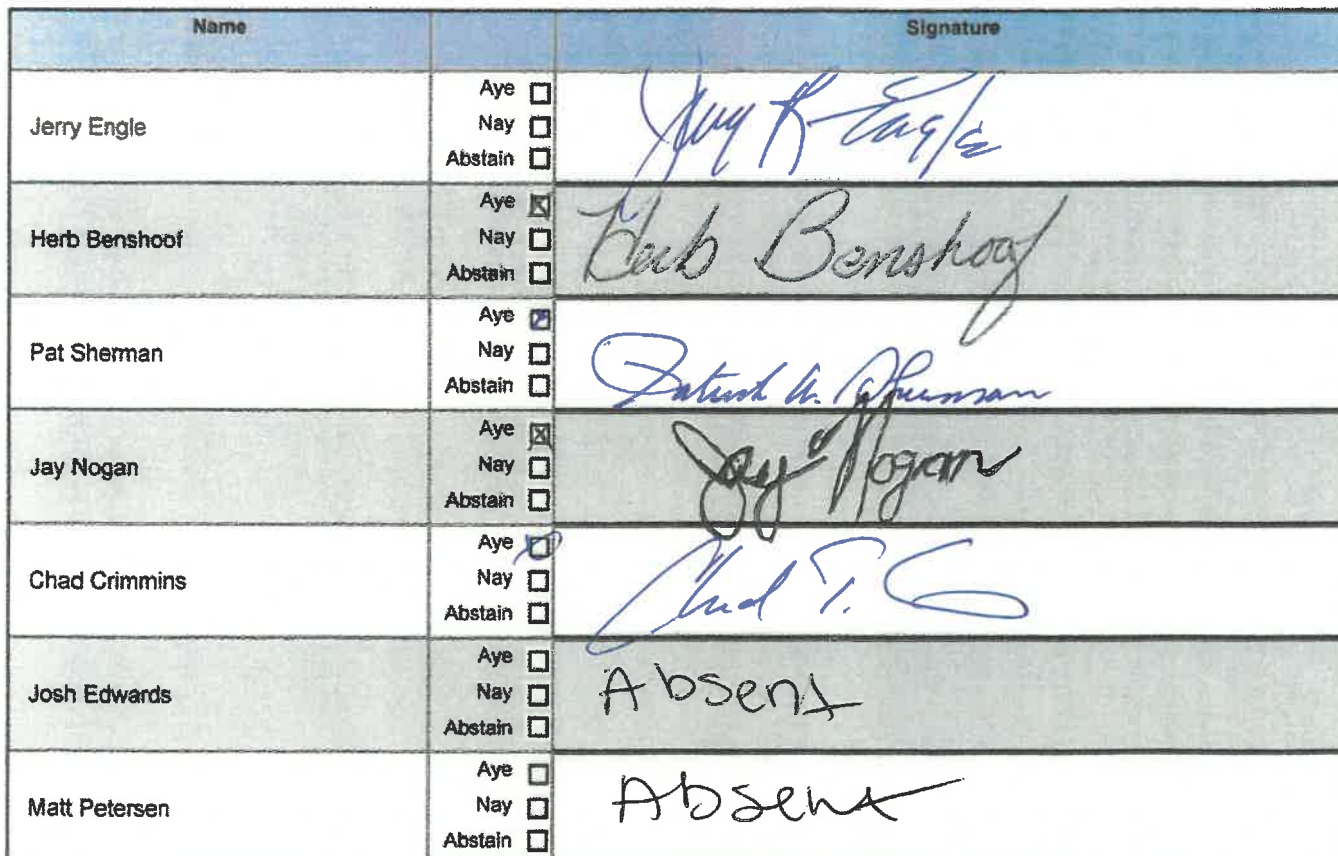 Name Signature
Jerry Engle
Aye ☐
Nay ☐
Abstain ☐
Jerry R Engle
Herb Benshoof
Aye ☒
Nay ☐
Abstain ☐
Herb Benshoof
Pat Sherman
Aye ☒
Nay ☐
Abstain ☐
Patrick A. Sherman
Jay Nogan
Aye ☒
Nay ☐
Abstain ☐
Jay Nogan
Chad Crimmins
Aye ☒
Nay ☐
Abstain ☐
Chad T. C
Josh Edwards
Aye ☐
Nay ☐
Abstain ☐
Absent
Matt Petersen
Aye ☐
Nay ☐
Abstain ☐
Absent